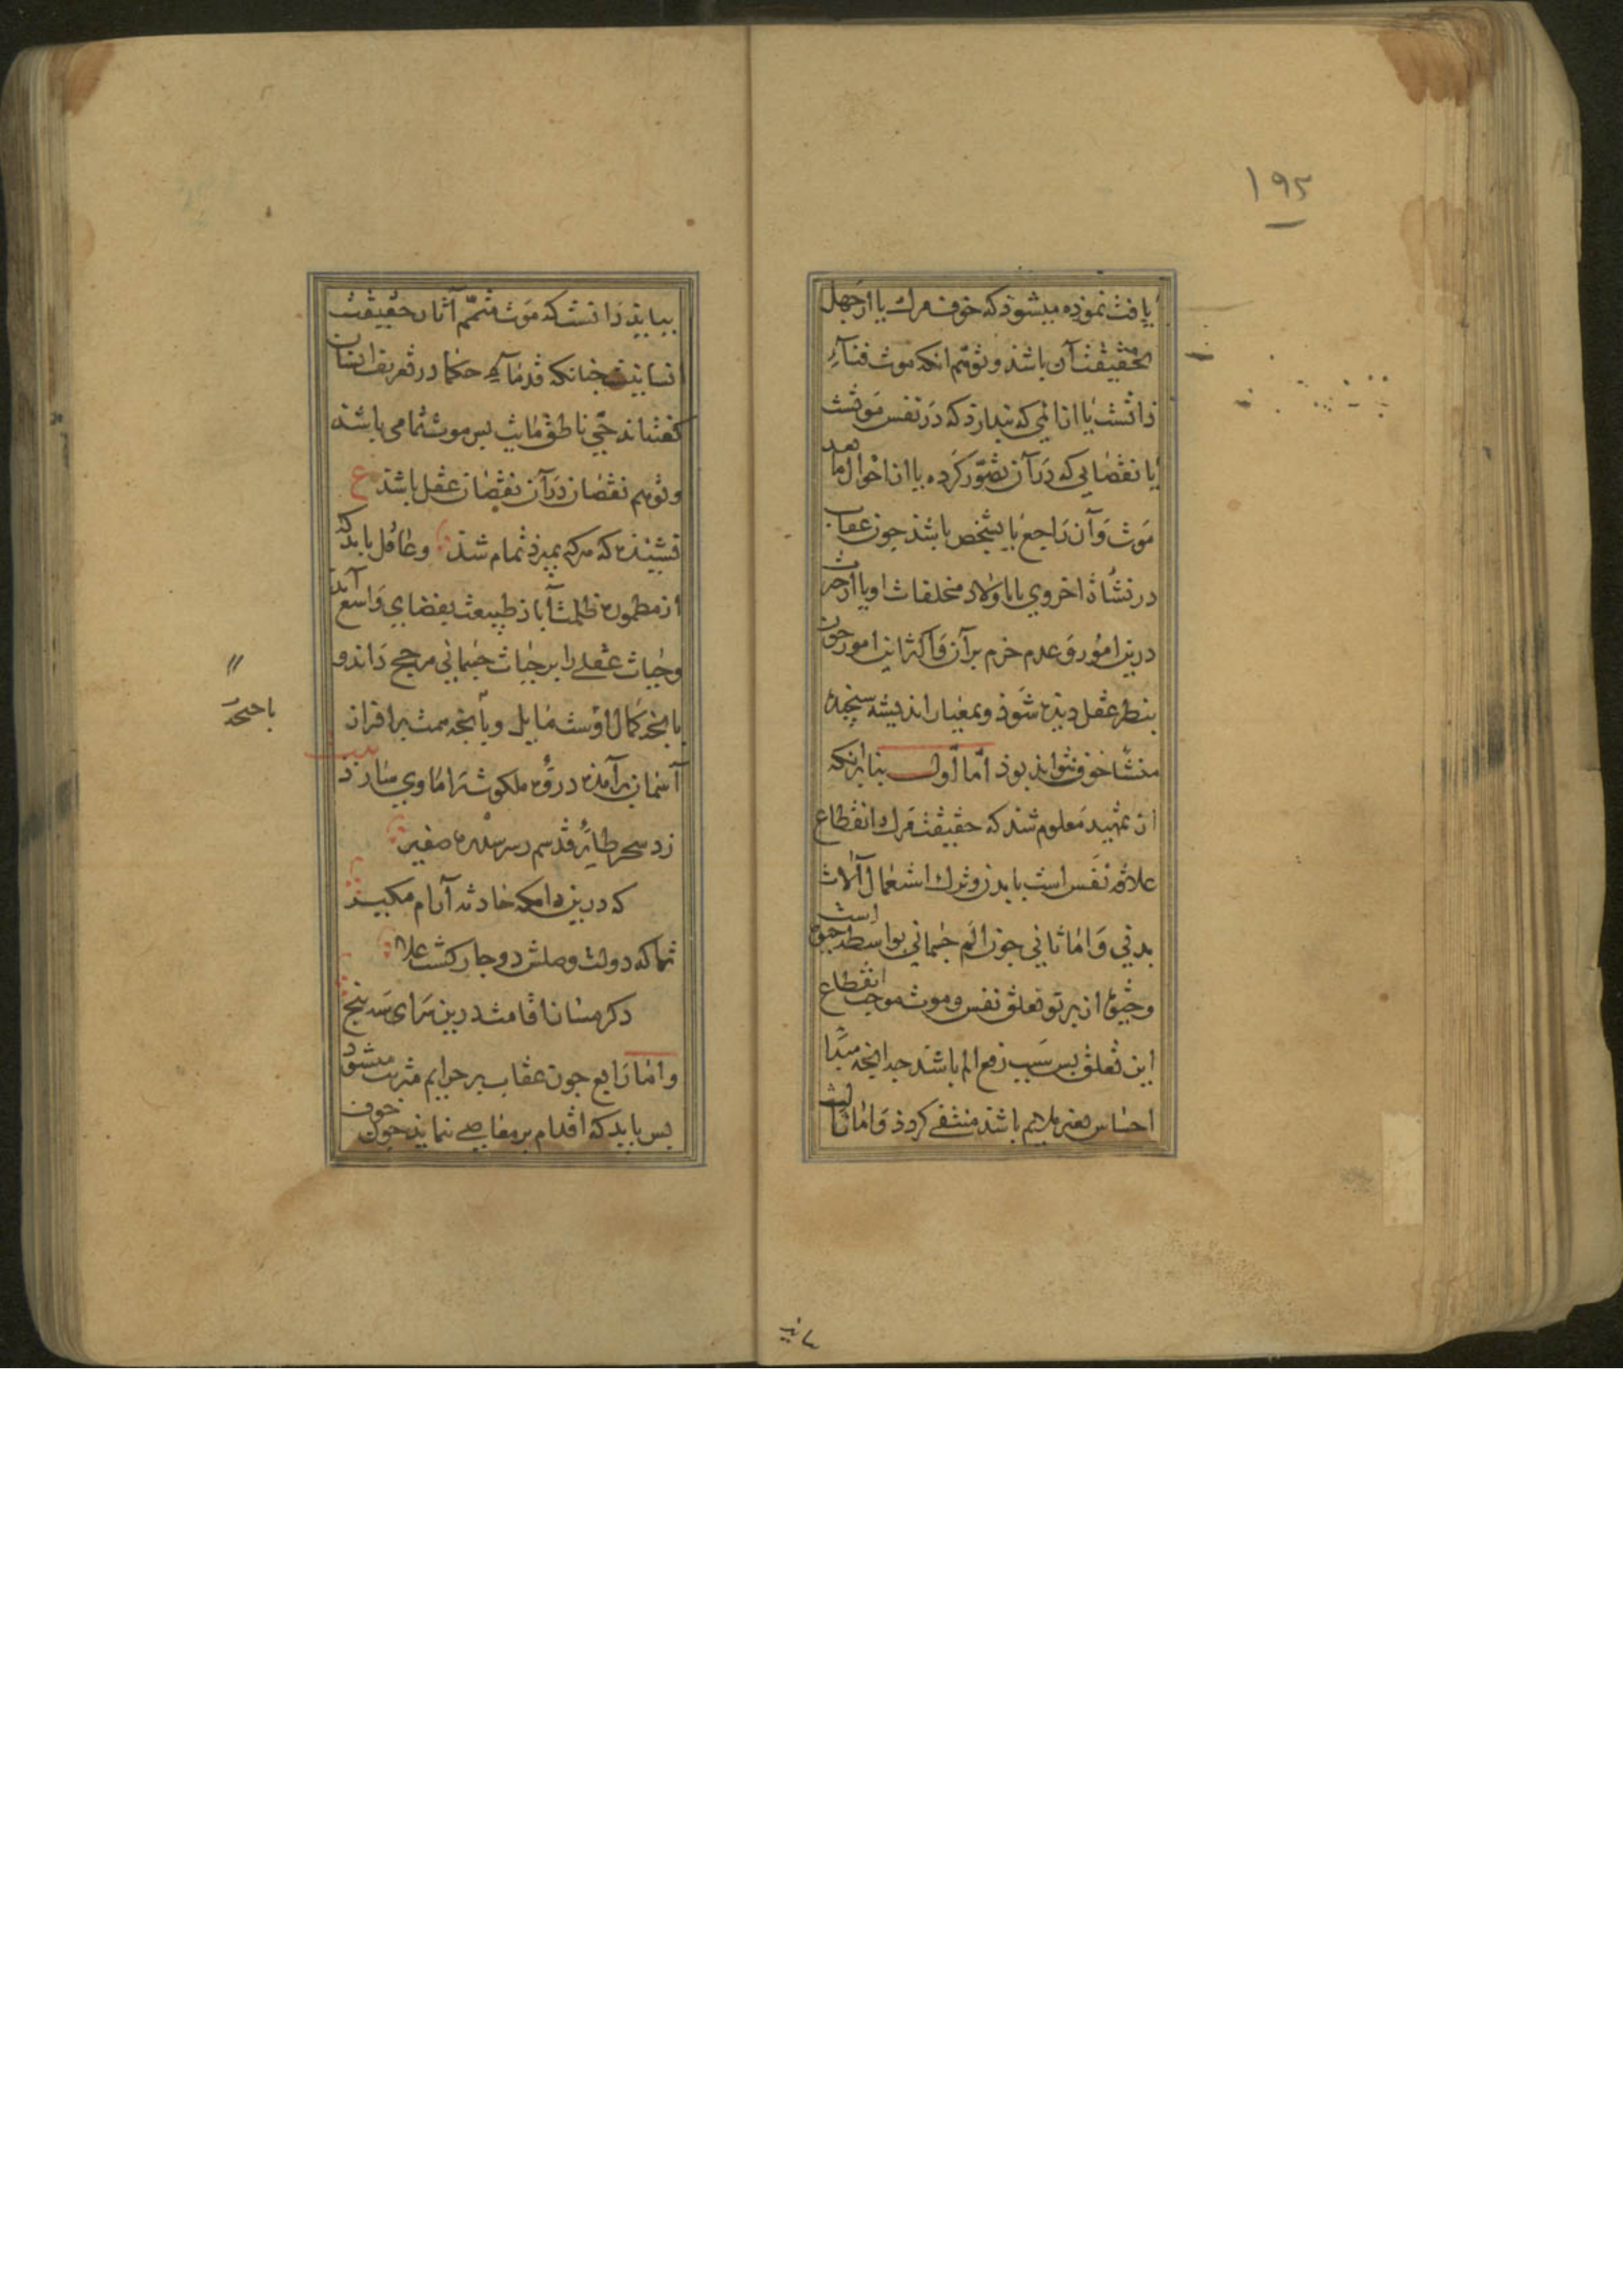 ۱۹۵
یافت نموده میشود که خوف مرك یا از جهل
بحقیقت آن باشد و توهم انکه موت فناء
ذاتست یا از المی که پندارد که در نفس موتست
یا نقصانی که در آن تصور کرده یا از احوال ما بعد
موت و آن راجع یا بشخص باشد چون عقاب
در نشأة اخروی یا باولاد و مخلفات او یا از حیرت
درین امور و عدم جزم برآن و اکثر این امور چون
بنظر عقل دیده شود و بمعیار اندیشه سنجیده
منشأ خوف نتواند بود اما اول بنابر انکه
از تمهید معلوم شد که حقیقت مرك انقطاع
علاقه نفس است با بدن و ترك استعمال آلات
بدنی و اما ثانی چون الم جسمانی بواسطه حیوة است
و حیوة از پرتو تعلق نفس و موت موجب انقطاع
این تعلق پس سبب رفع الم باشد چه انچه مبدأ
احساس بغیر ملایم باشد منتفی کردد و اما ثالث
بباید دانست که موت متمم آثار حقیقت
انسانیت چنانکه قدماء حکما در تعریف انسان
کفته‌اند حی ناطق مائت پس موت تمامی باشد
و توهم نقصان در آن نقصان عقل باشد ع
نشنیده که هرکه بمیرد تمام شد و عاقل باید که
از مطموره ظلمت آباد طبیعت بفضای واسع آید
و حیات عقلی را بر حیات جسمانی مرجح داند و
بانچه کمال اوست مایل و باجنحه همت بر افراز
آسمان برآمده دروه ملکوت را ماوی سازد بیت
زد سحر طایر قدسم ز سر سدره صفیر
که درین دامکه حادثه آرام مکیر
تماکه دولت وصلش دوچار کشت علا
دکر مساز اقامت درین سرای سپنج
و اما رابع چون عقاب بر جرایم مترتب میشود
پس باید که اقدام بر معاصی ننماید چون خوف
باجنحهٔ